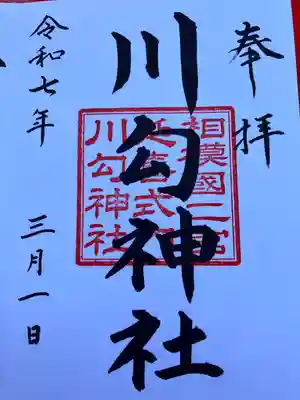 奉拝
川勾神社
相模國二宮
延喜式
川勾神社
令和七年 三月一日